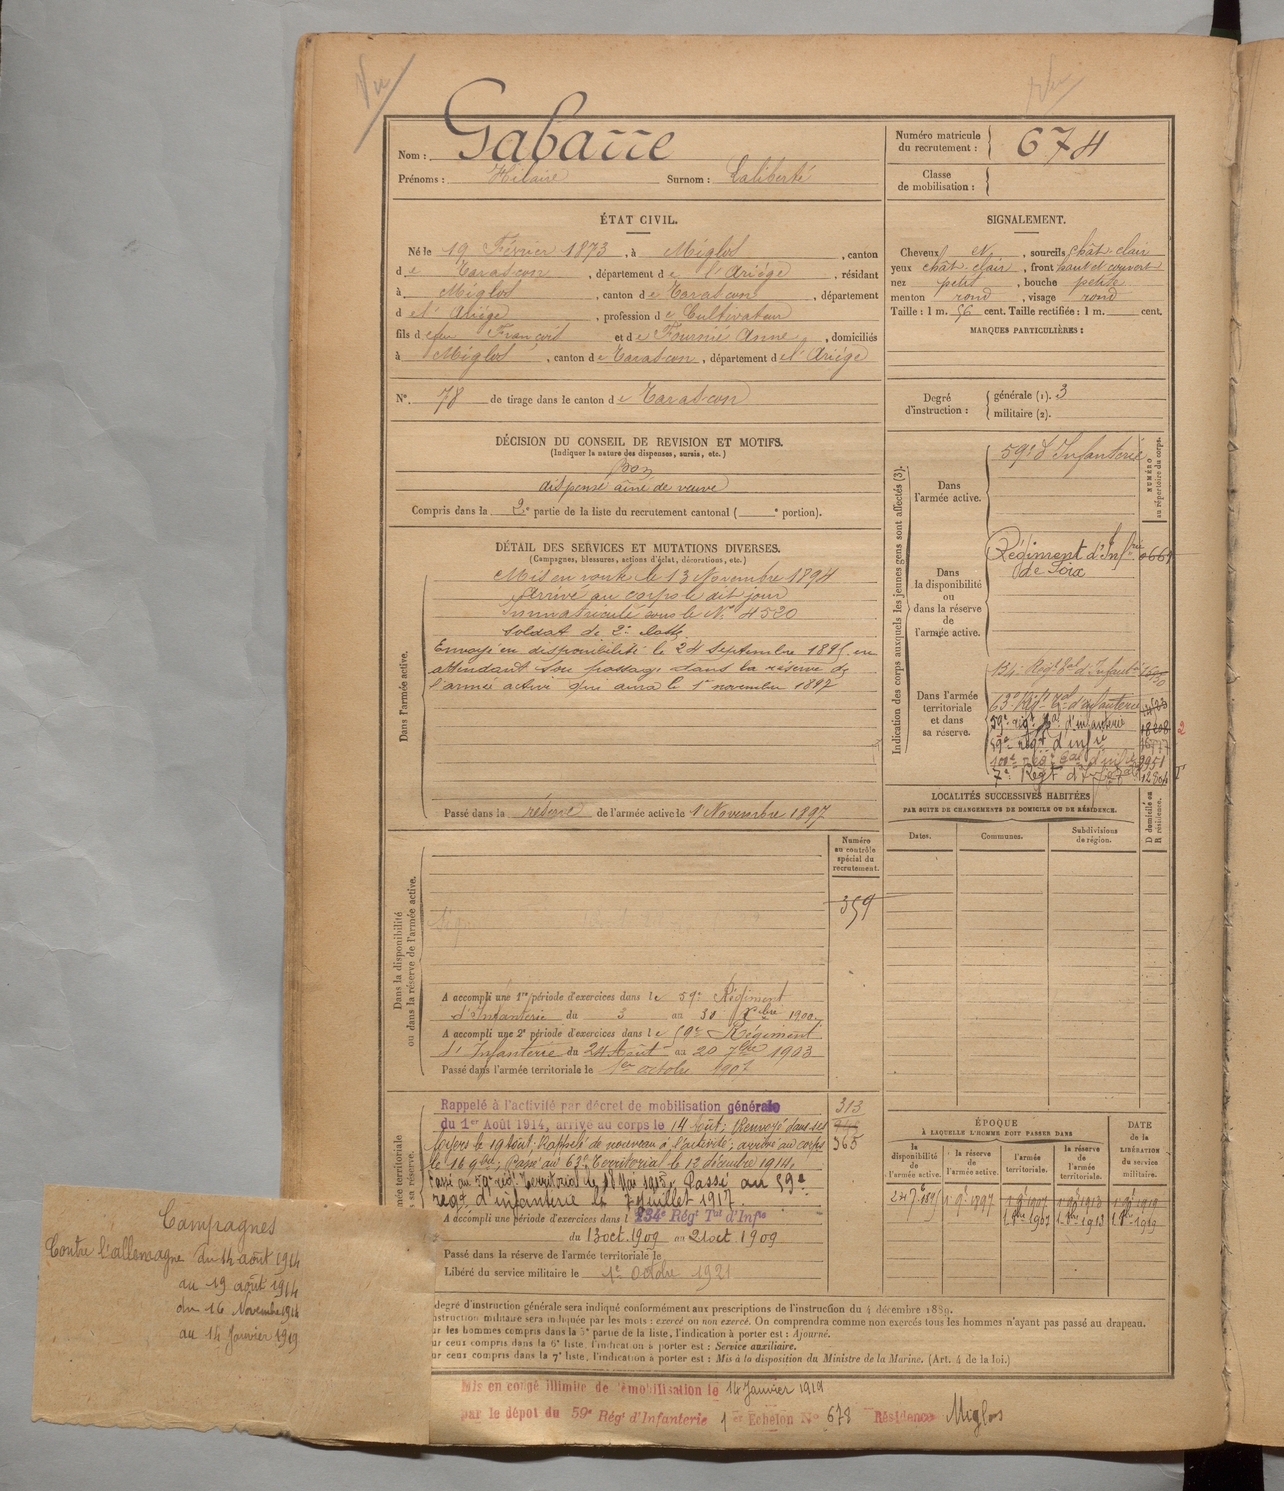 Vu
Vu
Nom : Gabarre
Prénoms : Hilaire Surnom : Laliberté
Numéro matricule du recrutement : 674
Classe de mobilisation :
ÉTAT CIVIL.
Né le 19 Février 1873, à Miglos, canton
de Tarascon, département de l'Ariége, résidant
à Miglos, canton de Tarascon, département
de l'Ariége, profession de Cultivateur
fils de feu François et de Fournié Anne, domiciliés
à Miglos, canton de Tarascon, département de l'Ariége
N° 78 de tirage dans le canton de Tarascon
SIGNALEMENT.
Cheveux N., sourcils chât. clair
yeux chât. clair, front haut et couvert
nez petit, bouche petite
menton rond, visage rond
Taille : 1 m. 56 cent. Taille rectifiée : 1 m. cent.
MARQUES PARTICULIÈRES :
Degré d'instruction : générale (1). 3
militaire (2).
DÉCISION DU CONSEIL DE REVISION ET MOTIFS.
(Indiquer la nature des dispenses, sursis, etc.)
Bon
dispensé ainé de veuve
Compris dans la 2e partie de la liste du recrutement cantonal ( e portion).
DÉTAIL DES SERVICES ET MUTATIONS DIVERSES.
(Campagnes, blessures, actions d'éclat, décorations, etc.)
Dans l'armée active.
Mis en route le 13 Novembre 1894
Arrivé au corps le dit jour
Immatriculé sous le N° 4520
Soldat de 2e classe
Envoyé en disponibilité le 24 Septembre 1895 en
attendant son passage dans la réserve de
l'armée active qui aura le 1er novembre 1897
Passé dans la réserve de l'armée active le 1 Novembre 1897
Indication des corps auxquels les jeunes gens sont affectés (3).
NUMÉRO au répertoire du corps.
Dans l'armée active.
59e d'Infanterie
Dans la disponibilité ou dans la réserve de l'armée active.
Régiment d'Infrie
de Foix
Dans l'armée territoriale et dans sa réserve.
134e Régt tal d'Infanterie
63e Régt tal d'infanterie
59e régt tal d'infanterie 18208
59e régt d'infie
100e régt tal d'infie 9951
7e Régt d'Infie tale 12804
LOCALITÉS SUCCESSIVES HABITÉES
PAR SUITE DE CHANGEMENTS DE DOMICILE OU DE RÉSIDENCE.
Dates. Communes. Subdivisions de région. D domicile ou R résidence.
Dans la disponibilité ou dans la réserve de l'armée active.
Numéro au contrôle spécial du recrutement.
359
A accompli une 1re période d'exercices dans le 59e Régiment
d'Infanterie du 3 au 30 Xbre 1900
A accompli une 2e période d'exercices dans le 59e Régiment
d'Infanterie du 24 Août au 20 7bre 1903
Passé dans l'armée territoriale le 1er octobre 1907
Rappelé à l'activité par décret de mobilisation générale 313
du 1er Août 1914, arrivé au corps le 14 Août; Renvoyé dans ses
foyers le 19 Août; Rappelé de nouveau à l'activité; arrivé au corps 365
le 16 9bre; Passé au 63e Territorial le 12 décembre 1914.
Passé au 59e régt Territorial le 18 Mai 1915. Passé au 59e
regt d'infanterie le 7 Juillet 1917
A accompli une période d'exercices dans l 134e Régt Tal d'Infie
du 13 oct. 1909 au 21 oct 1909
Passé dans la réserve de l'armée territoriale le
Libéré du service militaire le 1er Octobre 1921
ÉPOQUE
À LAQUELLE L'HOMME DOIT PASSER DANS
la disponibilité de l'armée active. la réserve de l'armée active. l'armée territoriale. la réserve de l'armée territoriale.
DATE de la LIBÉRATION du service militaire.
24 7bre 1895 1 9e 1897 1 9e 1907 1 9e 1913 1 9e 1919
1 8bre 1907 1 8bre 1913 1 8bre 1919
Campagnes
Contre l'allemagne du 14 août 1914
au 19 août 1914
du 16 Novembre 1914
au 14 Janvier 1919
degré d'instruction générale sera indiqué conformément aux prescriptions de l'instruction du 4 décembre 1889.
nstruction militaire sera indiquée par les mots : exercé ou non exercé. On comprendra comme non exercés tous les hommes n'ayant pas passé au drapeau.
ur les hommes compris dans la 5e partie de la liste, l'indication à porter est : Ajourné.
ur ceux compris dans la 6e liste, l'indication à porter est : Service auxiliaire.
ur ceux compris dans la 7e liste, l'indication à porter est : Mis à la disposition du Ministre de la Marine. (Art. 4 de la loi.)
Mis en congé illimité de démobilisation le 14 Janvier 1919
par le dépôt du 59e Régt d'Infanterie 1er Echelon N° 678 Résidence Miglos